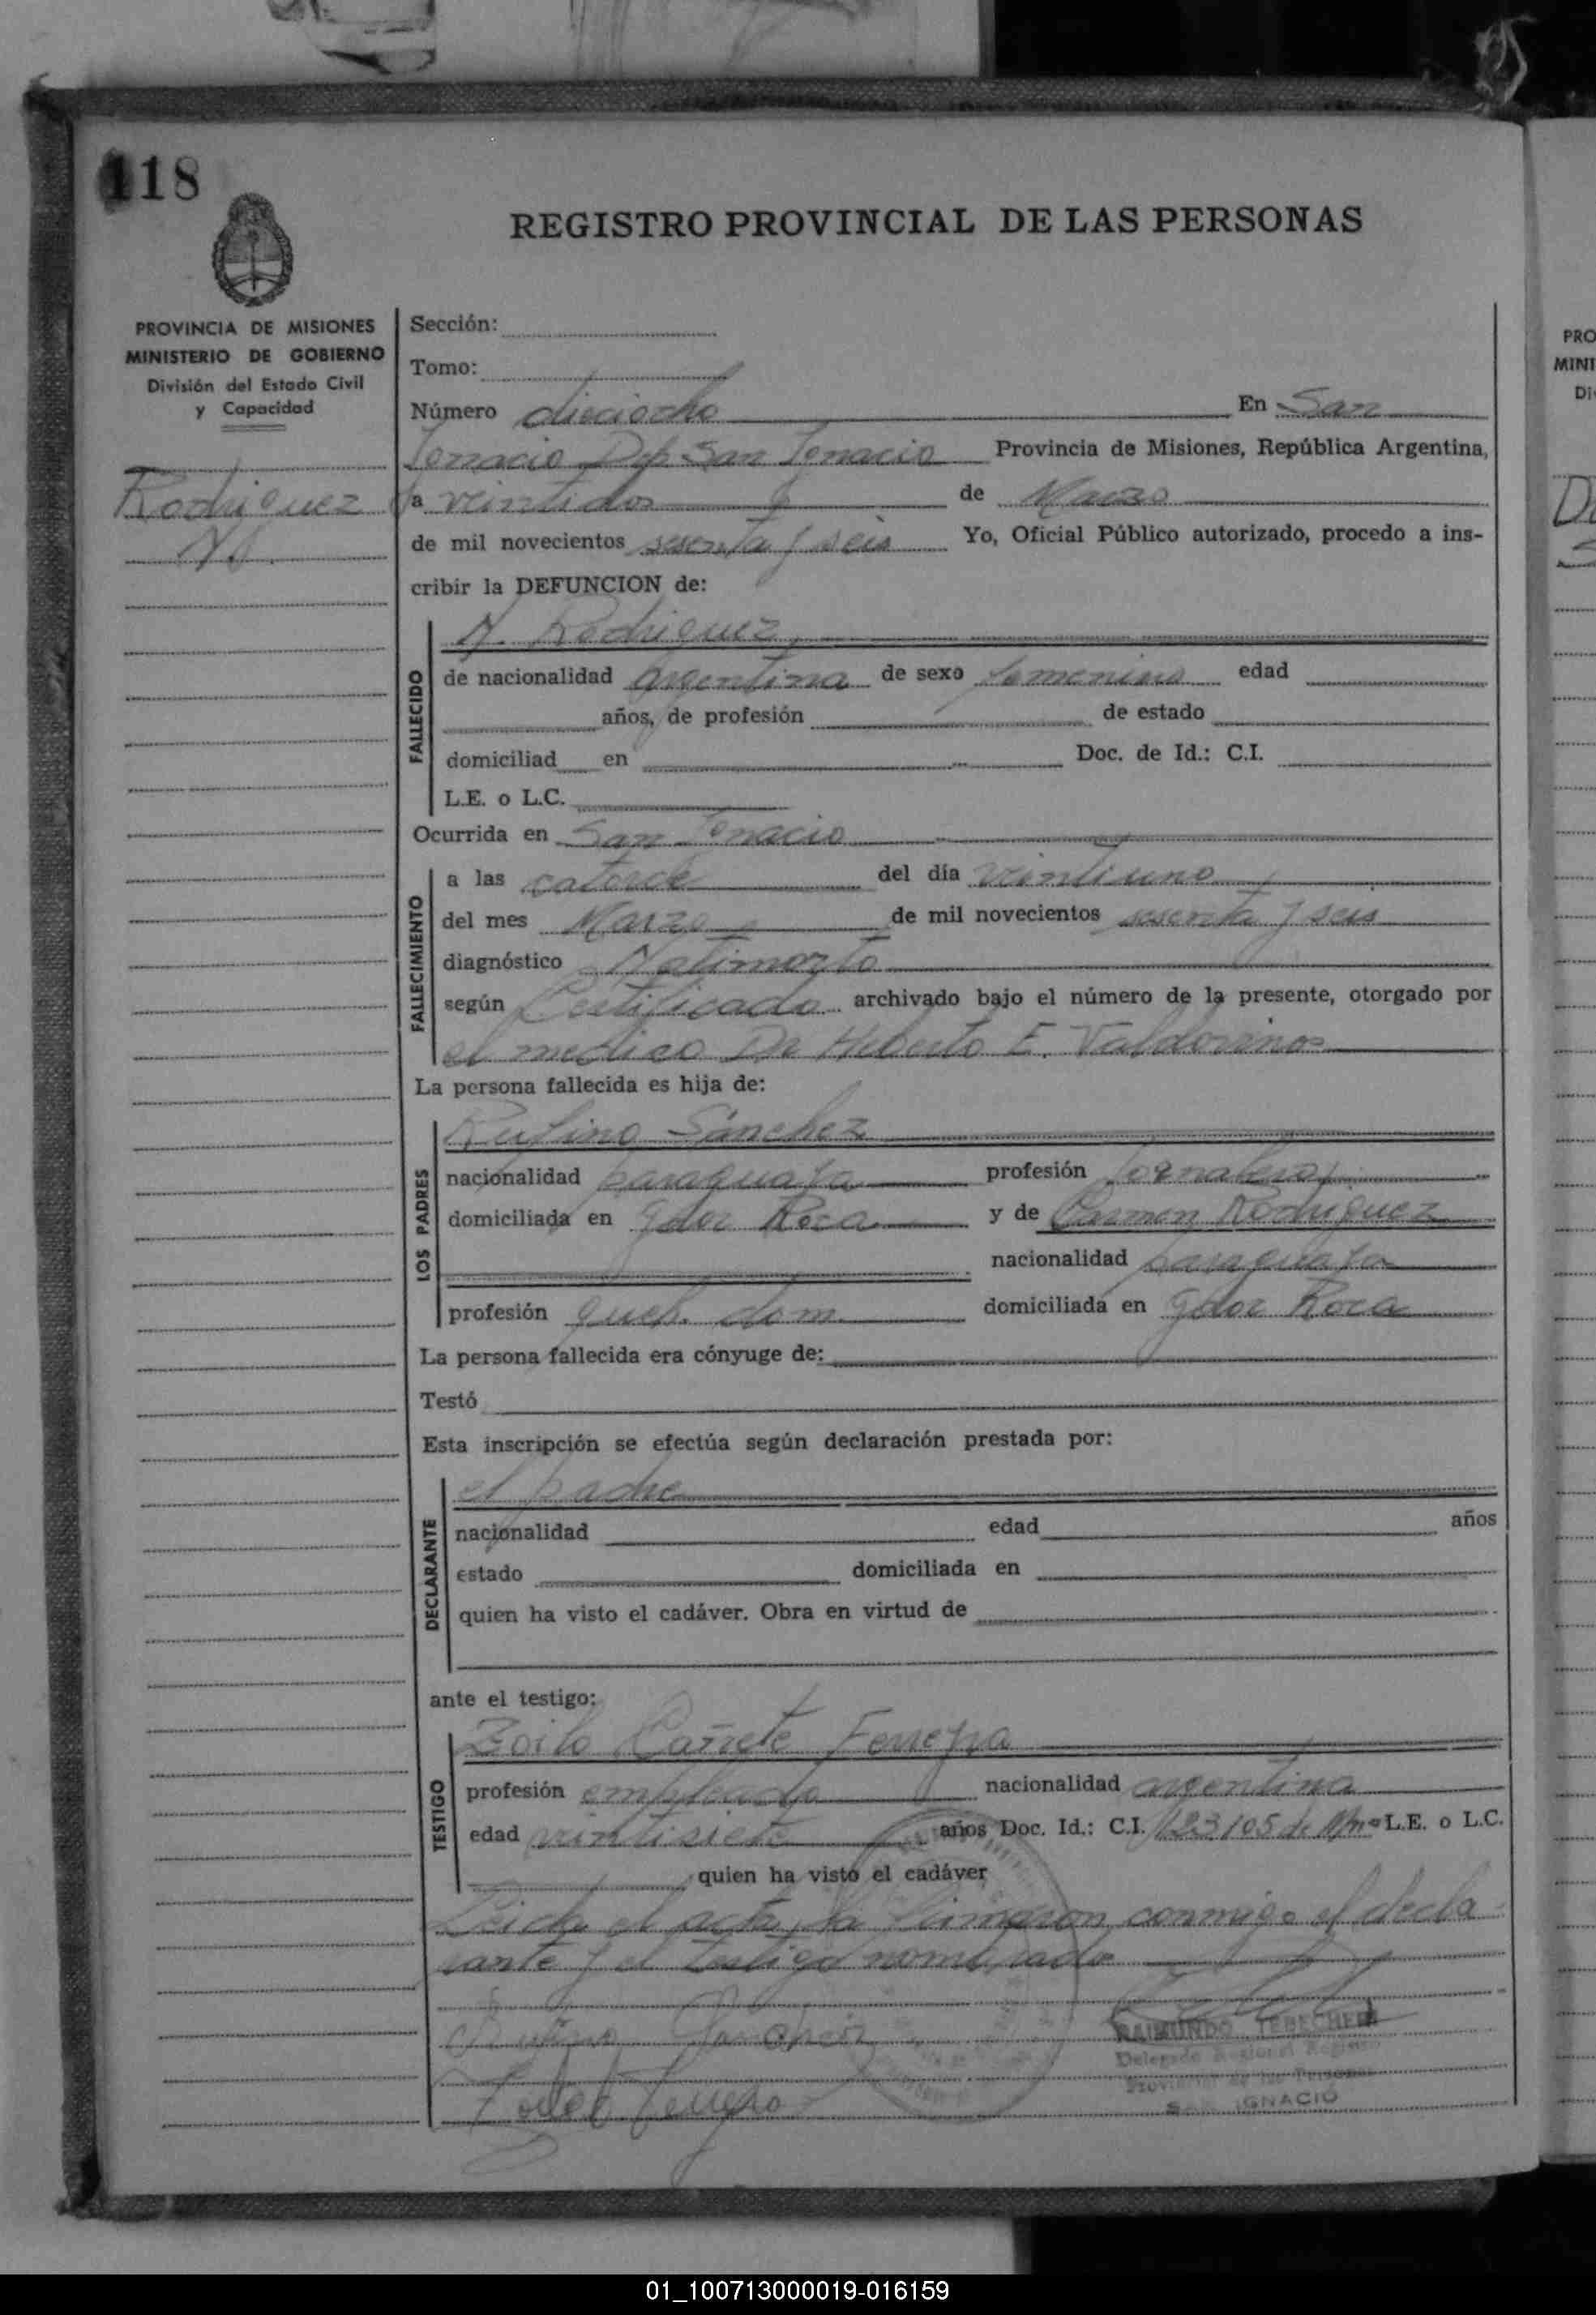 118
REGISTRO PROVINCIAL DE LAS PERSONAS
PROVINCIA DE MISIONES
MINISTERIO DE GOBIERNO
División del Estado Civil
y Capacidad
Rodriguez
N.
Sección:
Tomo:
Número dieciocho En San
Ignacio Dep. San Ignacio Provincia de Misiones, República Argentina,
a veintidos de Marzo
de mil novecientos sesenta y seis Yo, Oficial Público autorizado, procedo a ins-
cribir la DEFUNCION de:
FALLECIDO
N. Rodriguez
de nacionalidad argentina de sexo femenino edad
años, de profesión de estado
domiciliad en Doc. de Id.: C.I.
L.E. o L.C.
Ocurrida en San Ignacio
FALLECIMIENTO
a las catorce del día veintiuno
del mes Marzo de mil novecientos sesenta y seis
diagnóstico Natimorto
según Certificado archivado bajo el número de la presente, otorgado por
el medico Dr Heberto E. Valdovinos
La persona fallecida es hija de:
LOS PADRES
Rufino Sánchez
nacionalidad paraguaya profesión jornalero
domiciliada en Gdor Roca y de Carmen Rodriguez
nacionalidad paraguaya
profesión queh. dom. domiciliada en Gdor Roca
La persona fallecida era cónyuge de:
Testó
Esta inscripción se efectúa según declaración prestada por:
DECLARANTE
el padre
nacionalidad edad años
estado domiciliada en
quien ha visto el cadáver. Obra en virtud de
ante el testigo:
TESTIGO
Zoilo Cañete Ferreyra
profesión empleado nacionalidad argentina
edad veintisiete años Doc. Id.: C.I. 123105 de Mnes L.E. o L.C.
quien ha visto el cadáver
Leida el acta, la firmaron conmigo el decla-
rante y el testigo nombrado
Rufino Sanchez
RAIMUNDO TEBECHERI
Delegado Regional Registro
Provincial de las Personas
SAN IGNACIO
PRO
MINI
01_100713000019-016159